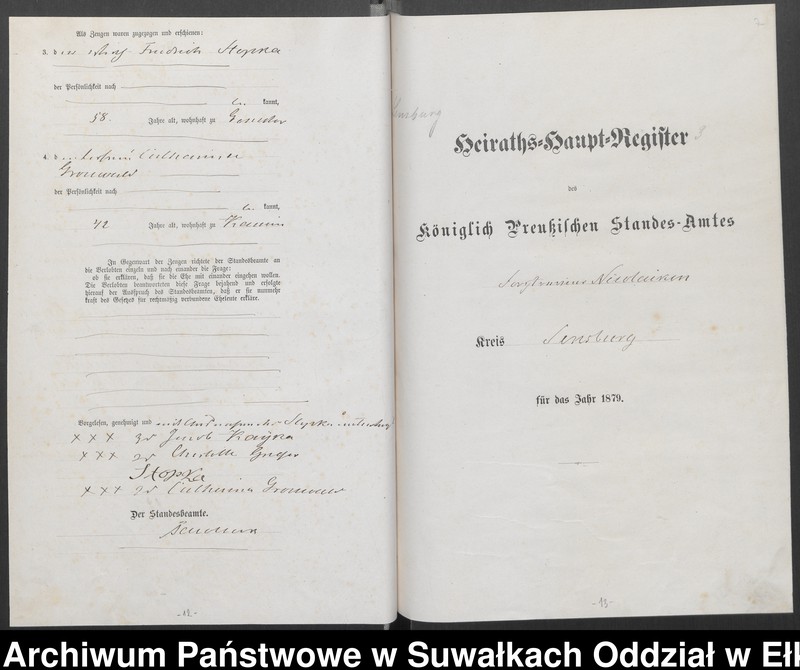 Als Zeugen waren zugezogen und erschienen:
3. d Friedrich Stopka
der Persönlichkeit nach
kannt,
58. Jahre alt, wohnhaft zu
4. d Catharina
Gronwald
der Persönlichkeit nach
kannt,
42 Jahre alt, wohnhaft zu
In Gegenwart der Zeugen richtete der Standesbeamte an
die Verlobten einzeln und nach einander die Frage:
ob sie erklären, daß sie die Ehe mit einander eingehen wollen.
Die Verlobten beantworteten diese Frage bejahend und erfolgte
hierauf der Ausspruch des Standesbeamten, daß er sie nunmehr
kraft des Gesetzes für rechtmäßig verbundene Eheleute erkläre.
Vorgelesen, genehmigt und Stopka
××× Jacob
××× Charlotte
Stopka
××× Catharina Gronwald
Der Standesbeamte.
-12-
Sensburg
Heiraths-Haupt-Register
des
Königlich Preußischen Standes-Amtes
Kreis Sensburg
für das Jahr 1879.
-13-
Archiwum Państwowe w Suwałkach Oddział w Eł